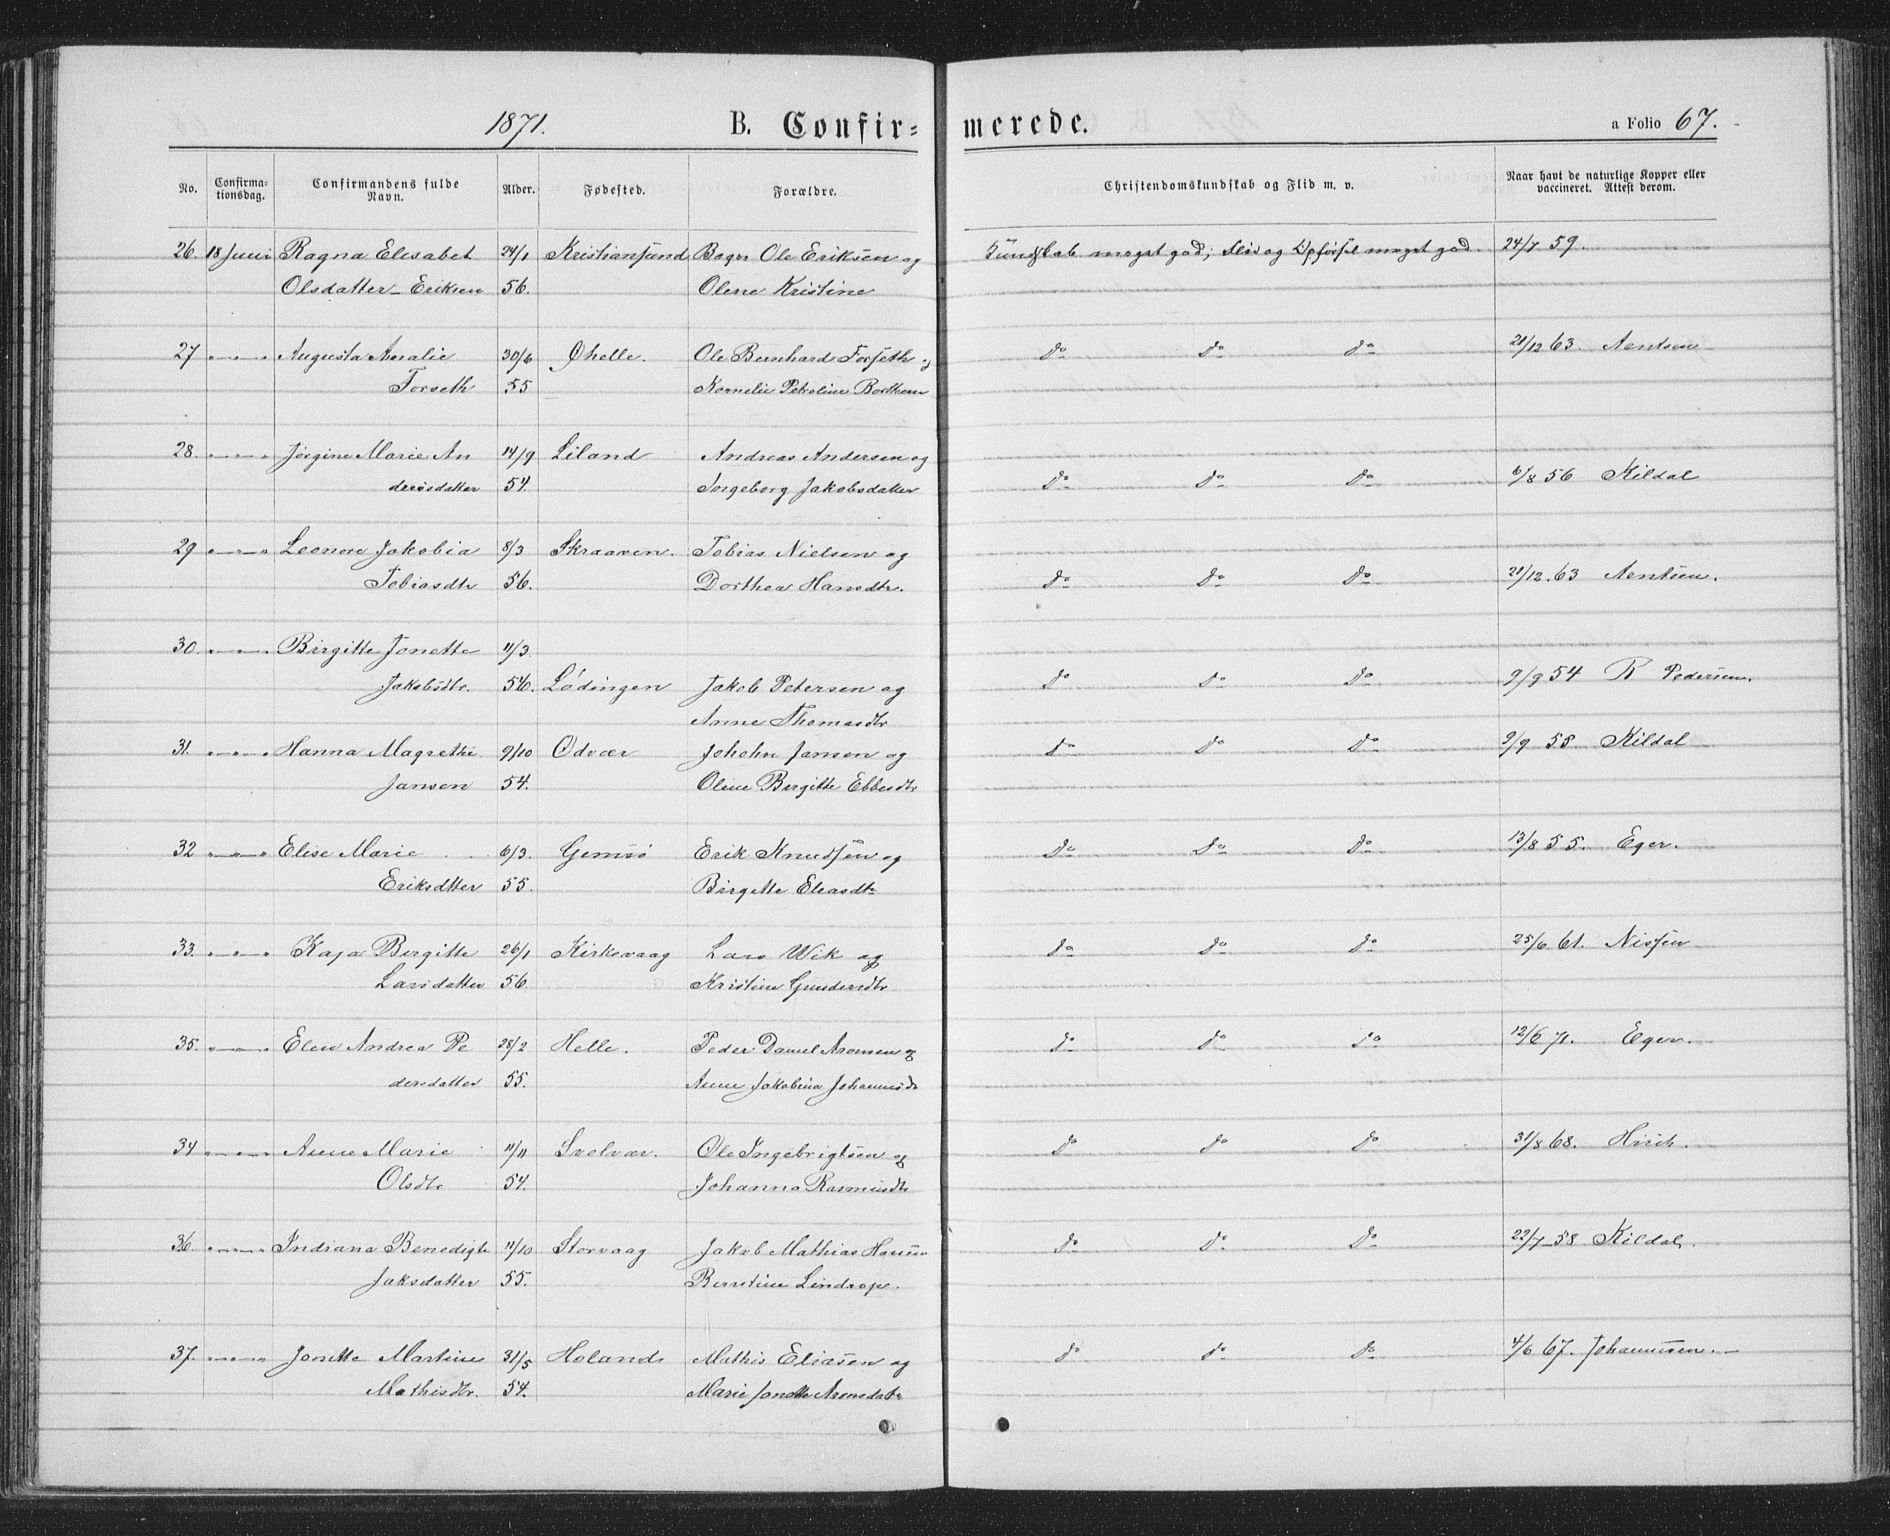 1871. B. Confir= merede. a Folio 67.
No. Confirma= tionsdag. Confirmandens fulde Navn. Alder. Fødested. Forældre. Christendomskundskab og Flid m. v. Naar havt de naturlige Kopper eller vaccineret. Attest derom.
26. 18 Juni Ragna Elisabet 24/1 Kristiansund Bager Ole Eriksen og Kundskab meget god; Flid og Opførsel meget god. 24/7 59.
Olsdatter Eriksen 56. Olene Kristine
27 Augusta Amalie 30/6 Ø helle. Ole Bernhard Forseth og Do Do Do 21/12 63. Aentsen
Forseth 55 Kornelie Petroline
28. Jørgine Marie An 14/9 Liland Andreas Andersen og
dersdatter 54. Ingeborg Jakobsdatter Do Do Do 6/8 56 Kildal
29 Leonore Jakobia 8/3 Skraaven. Tobias Nielsen og
Tobiasdtr 56. Dorthea Hansdtr. Do Do Do 21/12.63 Aentsen.
30. Birgitte Jonette 11/3
Jakobsdtr. 56. Lødingen Jakob Petersen og Do Do Do 9/9 54 R Pedersen.
Anne Thomasdtr
31. Hanna Magrethe 9/10 Odvær Johohn Jansen og Do Do Do 9/9 55. Kildal
Jansen 54. Oline Birgitte Ebbesdtr
32 Elise Marie 6/3. Gimsø Erik Knudsen og Do Do Do 13/8 55. Eger.
Eriksdtter 55. Birgitte Eliasdtr
33. Kaja Birgitte 26/1 Kirkevaag Lars Wik og Do Do Do 25/6 61. Nissen
Larsdatter 56. Kristine Gundersdtr
35. Elen Andrea Pe 28/2 Helle. Peder Daniel Aronsen og Do Do Do 12/6 71. Eger.
dersdatter 55. Anne Jakobina Johannesdr
34 Anne Marie 11/11 Svolvær. Ole Ingebrigtsen og Do Do Do 31/8 68. Hirsch.
Olsdtr 54. Johanna Rasmusdtr
36. Indiana Benedigte 11/10 Storvaag Jakob Mathias Hansen Do Do Do 22/7 58 Kildal.
Jaksdatter 55. Berntine
37. Jonette Martine 31/5 Holands Mathis Eliasen og Do Do Do 4/6 67. Johannesen.
Mathisdtr. 54. Marie Jonette Aronsdatr